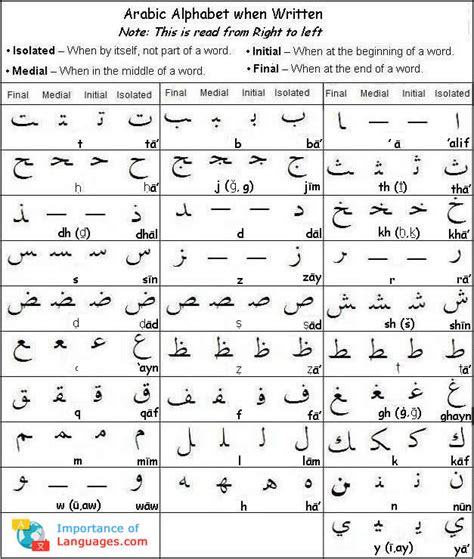 Arabic Alphabet when Written
Note: This is read from Right to left
• Isolated – When by itself, not part of a word. • Initial – When at the beginning of a word.
• Medial – When in the middle of a word. • Final – When at the end of a word.
Final Medial Initial Isolated Final Medial Initial Isolated Final Medial Initial Isolated
ـت ـتـ تـ ت ـب ـبـ بـ ب ـا — — ا
t tā' b bā' 'ā 'alif
ـح ـحـ حـ ح ـج ـجـ جـ ج ـث ـثـ ثـ ث
ḥ ḥā' j (ğ, g) jīm th (ṯ) thā'
ـذ — — ذ ـد — — د ـخ ـخـ خـ خ
dh (ḏ) dhāl d dāl kh (ḫ,ẖ) khā'
ـس ـسـ سـ س ـز — — ز ـر — — ر
s sīn z zāy r rā'
ـض ـضـ ضـ ض ـص ـصـ صـ ص ـش ـشـ شـ ش
ḍ ḍād ṣ ṣād sh (š) shīn
ـع ـعـ عـ ع ـظ ـظـ ظـ ظ ـط ـطـ طـ ط
‘ ‘ayn ẓ ẓā' ṭ ṭā'
ـق ـقـ قـ ق ـف ـفـ فـ ف ـغ ـغـ غـ غ
q qāf f fā' gh (ġ, ğ) ghayn
ـم ـمـ مـ م ـل ـلـ لـ ل ـك ـكـ كـ ك
m mīm l lām k kāf
ـو — — و ـه ـهـ هـ ه ـن ـنـ نـ ن
w (ū,aw) wāw h hā' n nūn
ـي ـيـ يـ ي
y (ī,ay) yā'
Importance of
Languages.com